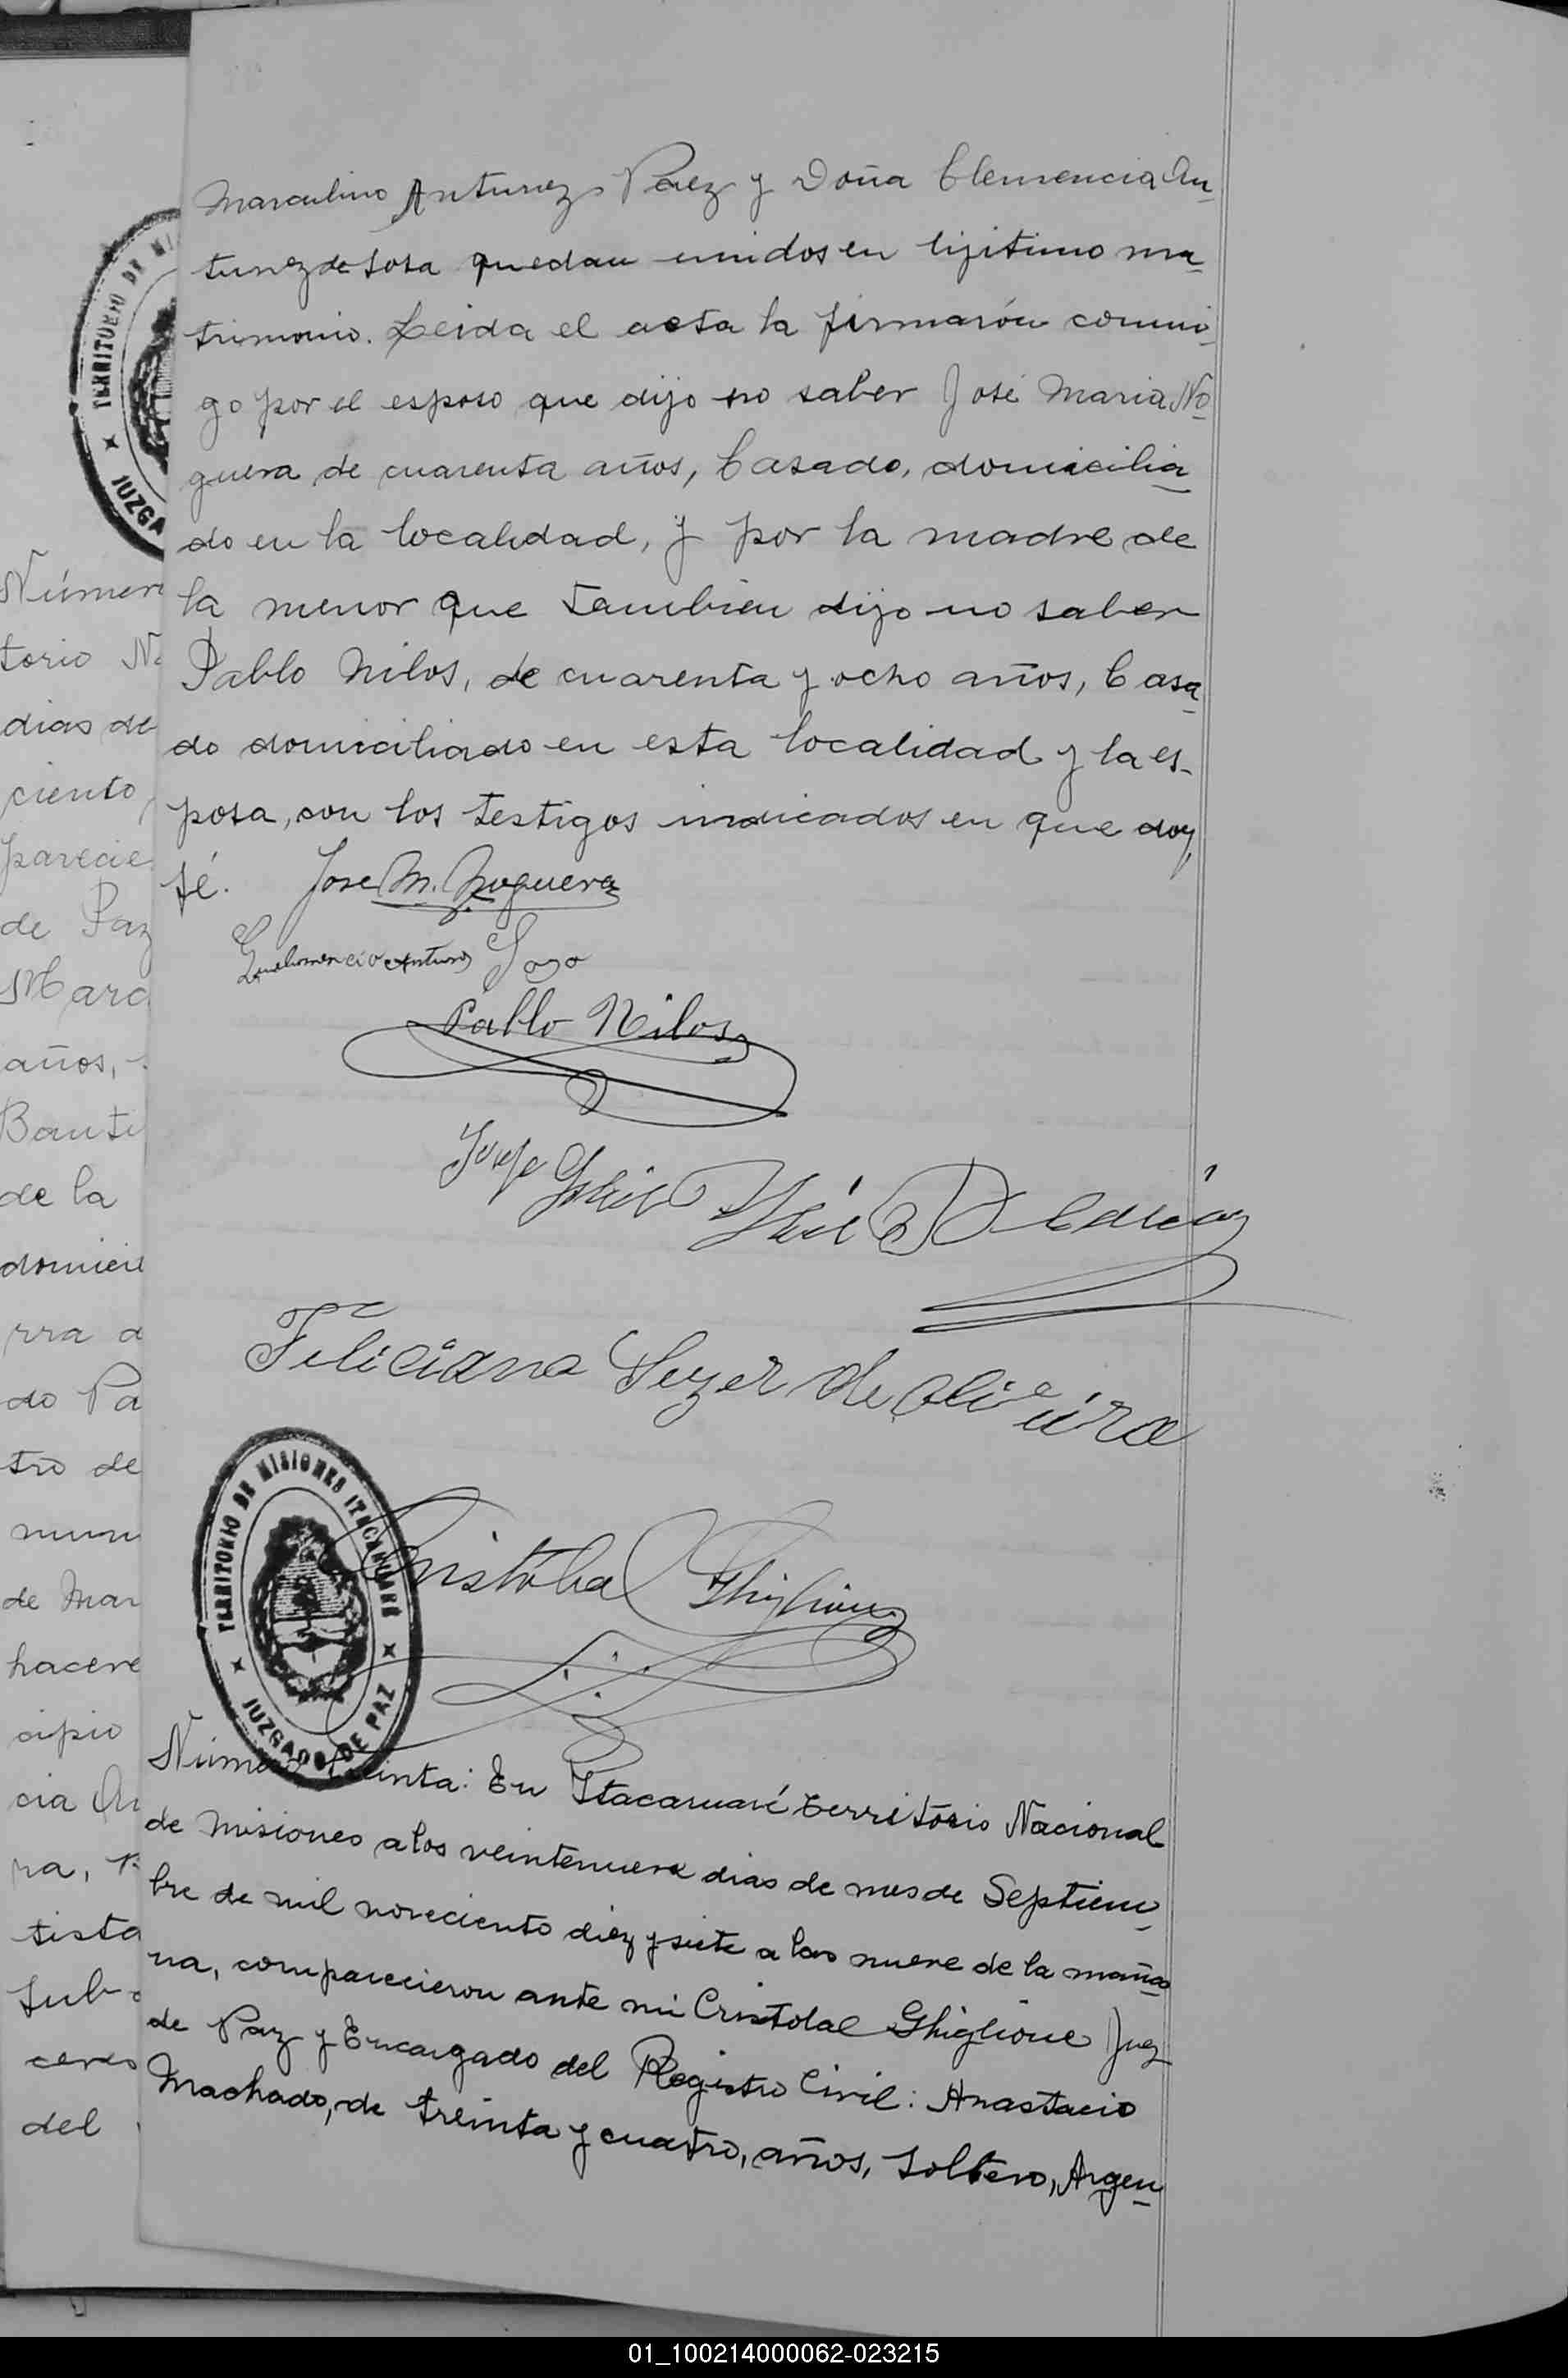 Marculino Antunez Paez y Doña Clemencia An
tunez de Sosa quedan unidos en lijitimo ma
trimonio. Leida el acta la firmarón conmi
go por el esposo que dijo no saber José Maria No
guera de cuarenta años, Casado, domicilia
do en la localidad, y por la madre de
la menor que tambien dijo no saber
Pablo Nilos, de cuarenta y ocho años, Casa
do domiciliado en esta localidad y la es-
posa, con los testigos indicados en que doy
fé. Jose M. Noguera
Antunes Soso
Pablo Nilos
Jorge
Feliciana de Oliveira
TERRITORIO DE MISIONES ITACARUARÉ
JUZGADO DE PAZ
Cristobal Ghiglione
Número Treinta: En Itacaruaré Territorio Nacional
de Misiones a los veintenueve dias de mes de Septiem
bre de mil noveciento diez y siete a las nueve de la maña
na, comparecieron ante mi Cristobal Ghiglione Juez
de Paz y Encargado del Registro Civil: Anastacio
Machado, de treinta y cuatro, años, soltero, Argen
TERRITORIO DE MI
JUZGA
Númer
torio N
dias de
ciento,
parecie
de Paz
Marc
años,
Bauti
de la
domicil
rra a
do Pa
tro de
mun
de Mar
hacere
cipio
cia An
ra,
tista
sub
ceres
del
01_100214000062-023215